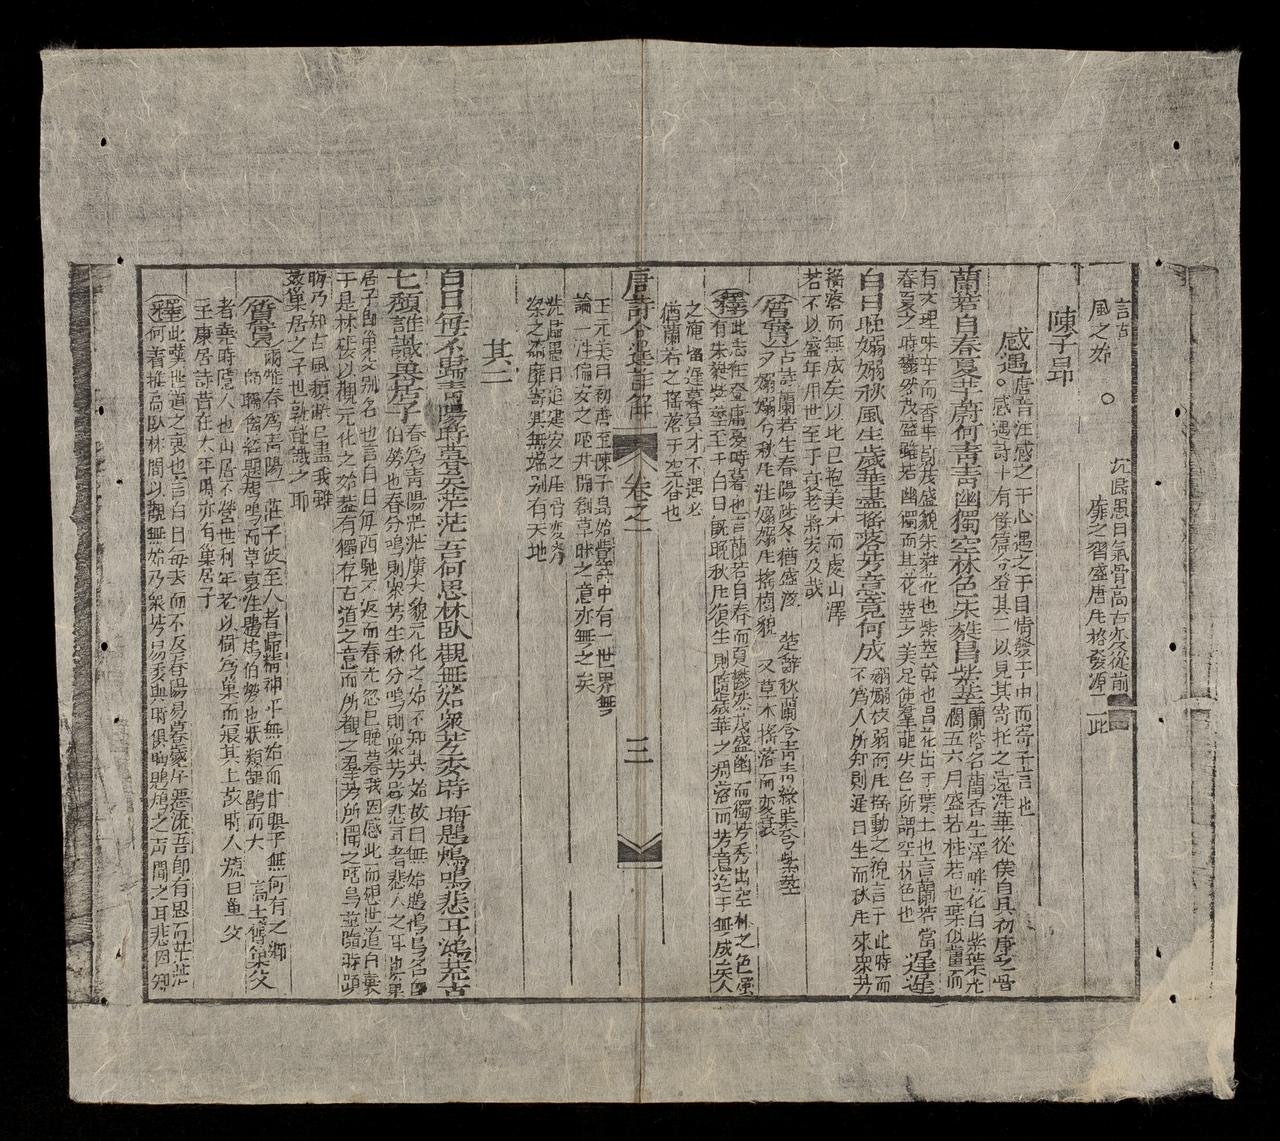 風之始
沈歸愚曰氣骨高古欠從前
靡之習盛唐風格發源于此
陳子昂
感遇
唐音注感之于心遇之于目情發于中而寄于言也
感遇詩十有餘篇今登其二以見其寄托之遠洗華從僕自具初唐之音
蘭若自春夏芊蔚何青青幽獨空林色朱蕤冒紫莖
蘭俗名蘭香生澤畔花白紫葉光
潤五六月盛若杜若也葉似薑而
有文理味辛而香芊蔚茂盛貌朱蕤花也紫莖幹也冒花出于葉上也言蘭若當
春夏之時鬱然茂盛雖若幽獨而其花莖之美足使羣葩失色所謂空林色也
遲遲
白日晚嫋嫋秋風生歲華盡搖落芳意竟何成
嫋嫋枝弱而風搖動之貌言于此時而
不爲人所知則遲日生而秋風來衆芳
搖落而無成矣以比已抱美才而處山澤
若不以盛年用世至于衰老將安及哉
舊實
古詩蘭若生春陽陟冬猶盛滋 楚辭秋蘭兮青青綠葉兮紫莖
夕嫋嫋兮秋風注嫋嫋風搖樹貌 又草木搖落而變衰
釋
此志在登庸憂時暮也言蘭若自春而夏鬱然茂盛幽而獨芳秀出空林之色蓋
有朱蕤紫莖至于白日既晚秋風復生則隨歲華之凋落而芳意迄于無成矣人
之淹留遲暮負才不遇必
猶蘭若之搖落于空谷也
唐詩合選詳解 卷之一 三
王元美曰初唐至陳子昻始覺詩中有一世界無
論一洗偏安之陋并開創草昧之意亦無之矣
沈歸愚曰追建安之風骨變齊
梁之綺靡寄興無端别有天地
其二
白日每不歸青陽時暮矣茫茫吾何思林臥觀無始衆芳委時晦鶗鴂鳴悲耳鴻荒古
七頹誰識巢居子
春爲青陽茫茫廣大貌元化之始不知其始故曰無始鶗鴂鳥名即
伯勞也春分鳴則衆芳生秋分鳴則衆芳歇悲耳者悲人之耳也巢
居子即巢父别名也言白日每西馳不返而春光忽已晚暮我因感此而嘆世道日衰
于是林棲以觀元化之始蓋有獨存古道之意而所觀之羣芳所聞之啼鳥並臨時頭
晦乃知古風頹敝已盡我雖
效巢居之子也孰能識之耶
舊實
爾雅春爲青陽 莊子彼至人者歸精神乎無始而甘瞑乎無何有之鄉
師曠禽經鶗鴂鳴而草衰注鶗鴂伯勞也狀類鶷鶡而大 高士傳巢父
者堯時隱人也山居不營世利年老以樹爲巢而寢其上故時人號曰巢父
王康居詩昔在太平時亦有巢居子
釋
此嘆世道之衰也言白日每去而不反春陽易暮歲序遷流吾即有思而茫茫
何著推高臥林間以觀無始乃衆芳易委與時俱晦鶗鴂之聲聞之耳悲因知